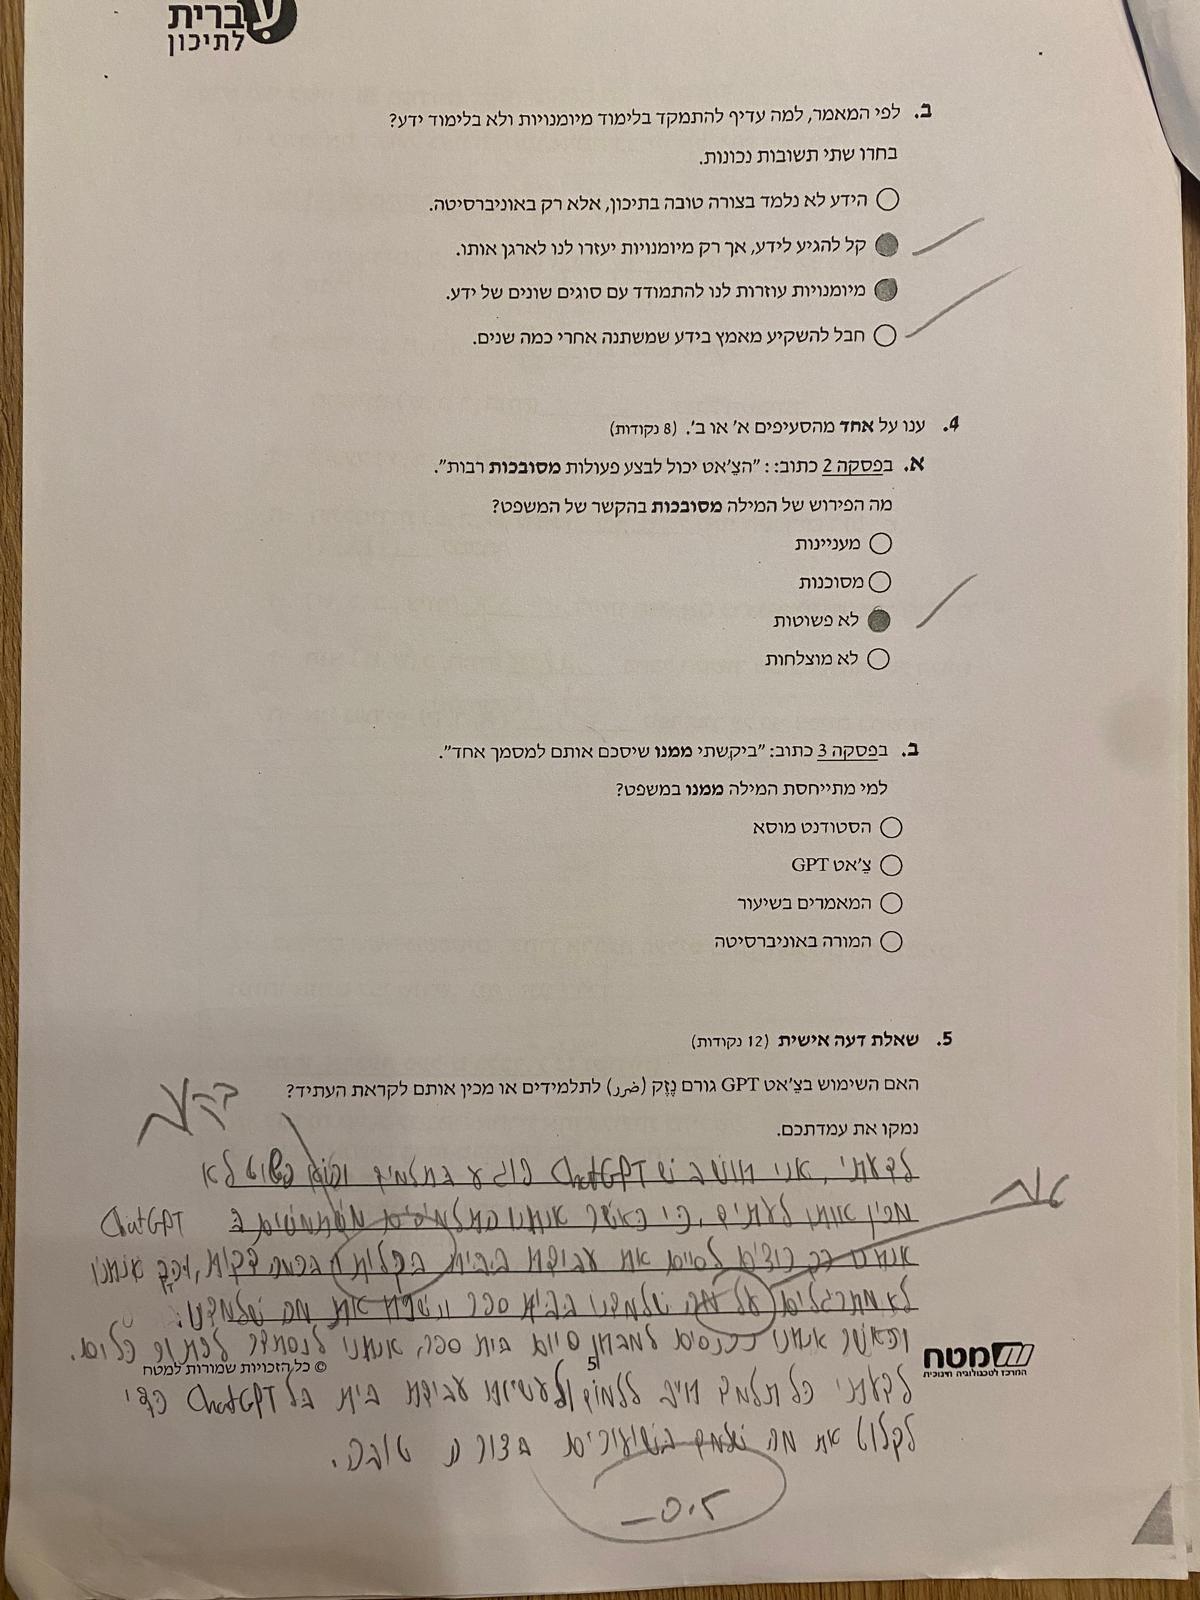 עברית
לתיכון
ב. לפי המאמר, למה עדיף להתמקד בלימוד מיומנויות ולא בלימוד ידע?
בחרו שתי תשובות נכונות.
הידע לא נלמד בצורה טובה בתיכון, אלא רק באוניברסיטה.
קל להגיע לידע, אך רק מיומנויות יעזרו לנו לארגן אותו.
מיומנויות עוזרות לנו להתמודד עם סוגים שונים של ידע.
חבל להשקיע מאמץ בידע שמשתנה אחרי כמה שנים.
4. ענו על אחד מהסעיפים א' או ב'. (8 נקודות)
א. בפסקה 2 כתוב: : "הצֶ'אט יכול לבצע פעולות מסובכות רבות".
מה הפירוש של המילה מסובכות בהקשר של המשפט?
מעניינות
מסוכנות
לא פשוטות
לא מוצלחות
ב. בפסקה 3 כתוב: "ביקשתי ממנו שיסכם אותם למסמך אחד".
למי מתייחסת המילה ממנו במשפט?
הסטודנט מוסא
צֶ'אט GPT
המאמרים בשיעור
המורה באוניברסיטה
5. שאלת דעה אישית (12 נקודות)
האם השימוש בצֶ'אט GPT גורם נֶזֶק (ضرر) לתלמידים או מכין אותם לקראת העתיד?
נמקו את עמדתכם.
לדעתי, אני חושב ש ChatGPT פוגע בתלמיד פשוט לא
מכין אותו לעתיד, כי כאשר אנחנו התלמידים משתמשים ב ChatGPT
אנחנו רק רוצים לסיים את עבודת הבית בקלות דקות, אנחנו
לא מתרגלים על מה שלמדנו בבית ספר את מה שלמדנו.
וכאשר אנחנו נכנסים למבחן סיום בית ספר, אנחנו כלום.
© כל הזכויות שמורות למטח
5
מטח
המרכז לטכנולוגיה חינוכית
לדעתי כל תלמיד חייב ללמוד עבודת בית בלי ChatGPT כדי
לקלוט את מה בשיעורים בצורה טובה.